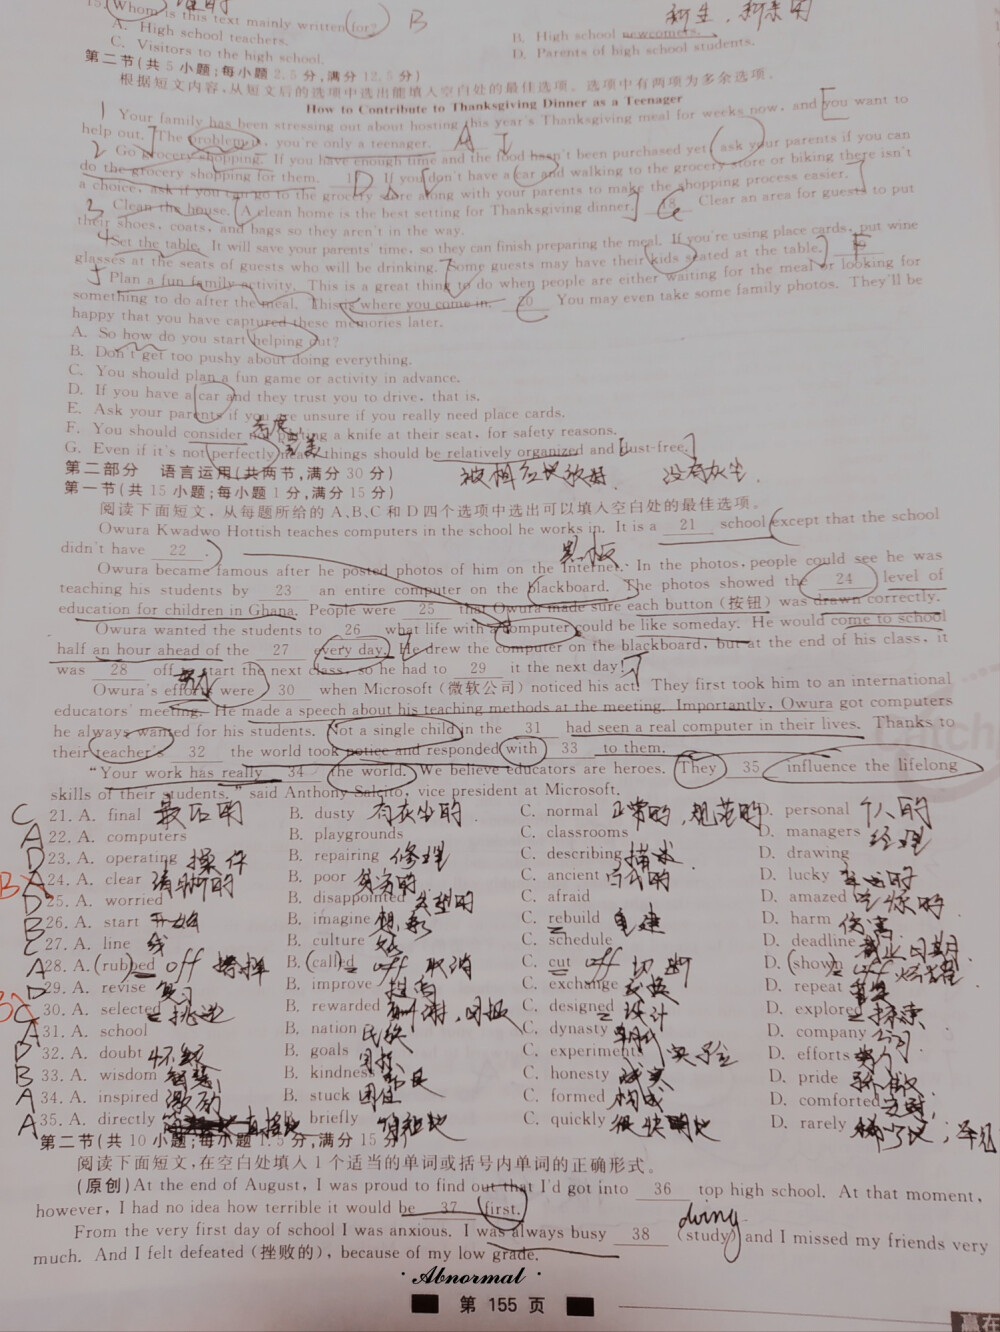 15. Whom is this text mainly written for? B
A. High school teachers.
B. High school newcomers.
C. Visitors to the high school.
D. Parents of high school students.
第二节(共5小题;每小题2.5分,满分12.5分)
根据短文内容,从短文后的选项中选出能填入空白处的最佳选项。选项中有两项为多余选项。
How to Contribute to Thanksgiving Dinner as a Teenager
Your family has been stressing out about hosting this year's Thanksgiving meal for weeks now, and you want to
help out. The problem is, you're only a teenager. A
Go grocery shopping. If you have enough time and the food hasn't been purchased yet, ask your parents if you can
do the grocery shopping for them. D If you don't have a car and walking to the grocery store or biking there isn't
a choice, ask if you can go to the grocery store along with your parents to make the shopping process easier.
Clean the house. A clean home is the best setting for Thanksgiving dinner. 18 G Clear an area for guests to put
their shoes, coats, and bags so they aren't in the way.
Set the table. It will save your parents' time, so they can finish preparing the meal. If you're using place cards, put wine
glasses at the seats of guests who will be drinking. Some guests may have their kids seated at the table. F
Plan a fun family activity. This is a great thing to do when people are either waiting for the meal or looking for
something to do after the meal. This is where you come in. 20 C You may even take some family photos. They'll be
happy that you have captured these memories later.
A. So how do you start helping out?
B. Don't get too pushy about doing everything.
C. You should plan a fun game or activity in advance.
D. If you have a car and they trust you to drive, that is.
E. Ask your parents if you are unsure if you really need place cards.
F. You should consider not putting a knife at their seat, for safety reasons.
G. Even if it's not perfectly neat, things should be relatively organized and dust-free.
第二部分 语言运用(共两节,满分30分)
没有灰尘
第一节(共15小题;每小题1分,满分15分)
阅读下面短文,从每题所给的A、B、C和D四个选项中选出可以填入空白处的最佳选项。
Owura Kwadwo Hottish teaches computers in the school he works in. It is a 21 school except that the school
didn't have 22 .
黑板
Owura became famous after he posted photos of him on the Internet. In the photos, people could see he was
teaching his students by 23 an entire computer on the blackboard. The photos showed the 24 level of
education for children in Ghana. People were 25 that Owura made sure each button (按钮) was drawn correctly.
Owura wanted the students to 26 what life with a computer could be like someday. He would come to school
half an hour ahead of the 27 every day. He drew the computer on the blackboard, but at the end of his class, it
was 28 off to start the next class, so he had to 29 it the next day.
努力
Owura's efforts were 30 when Microsoft (微软公司) noticed his act. They first took him to an international
educators' meeting. He made a speech about his teaching methods at the meeting. Importantly, Owura got computers
he always wanted for his students. Not a single child in the 31 had seen a real computer in their lives. Thanks to
their teacher's 32 the world took notice and responded with 33 to them.
"Your work has really 34 the world. We believe educators are heroes. They 35 influence the lifelong
skills of their students." said Anthony Salcito, vice president at Microsoft.
C 21. A. final 最后的 B. dusty 有灰尘的 C. normal 正常的,规范的 D. personal 个人的
A 22. A. computers B. playgrounds C. classrooms D. managers 经理
D 23. A. operating 操作 B. repairing 修理 C. describing 描述 D. drawing
B 24. A. clear 清晰的 B. poor 贫穷的 C. ancient 古代的 D. lucky 幸运的
D 25. A. worried B. disappointed 失望的 C. afraid D. amazed 吃惊的
B 26. A. start 开始 B. imagine 想象 C. rebuild 重建 D. harm 伤害
C 27. A. line 线 B. culture C. schedule D. deadline 截止日期
A 28. A. rubbed off 擦掉 B. called off 取消 C. cut off 切断 D. showed off 炫耀
D 29. A. revise 复习 B. improve 提高 C. exchange 交换 D. repeat 重复
30. A. selected 挑选 B. rewarded 酬谢,回报 C. designed 设计 D. explored 探索
A 31. A. school B. nation 民族 C. dynasty 朝代 D. company 公司
D 32. A. doubt 怀疑 B. goals 目标 C. experiments 实验 D. efforts 努力
B 33. A. wisdom 智慧 B. kindness C. honesty 诚实 D. pride 骄傲
A 34. A. inspired 激励 B. stuck 困住 C. formed 构成 D. comforted
A 35. A. directly 直接地 B. briefly 简短地 C. quickly 很快地 D. rarely
第二节(共10小题;每小题1.5分,满分15分)
阅读下面短文,在空白处填入1个适当的单词或括号内单词的正确形式。
(原创)At the end of August, I was proud to find out that I'd got into 36 top high school. At that moment,
however, I had no idea how terrible it would be 37 first.
doing
From the very first day of school I was anxious. I was always busy 38 (study) and I missed my friends very
much. And I felt defeated (挫败的), because of my low grade.
· Abnormal ·
第 155 页
赢在